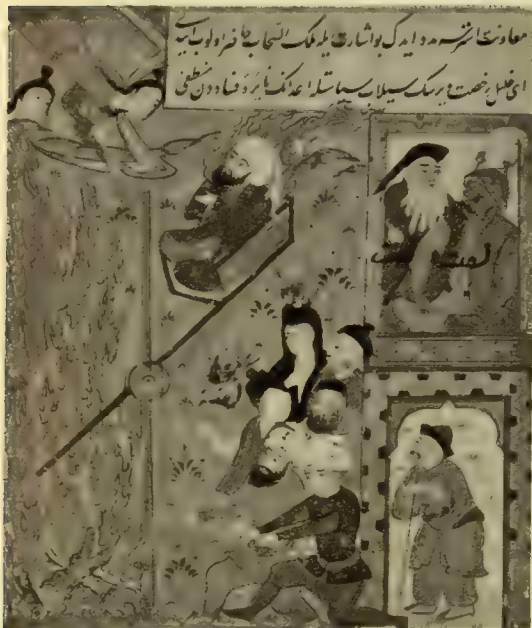 معاونت اتسه مدد ایدک بو اشارت ایله ملک السحاب حاضر اولوب ایتدی
ای خلیل رخصت ویرسک سیلاب سیاستله اعدانک نایرهٔ فسادون منطفی